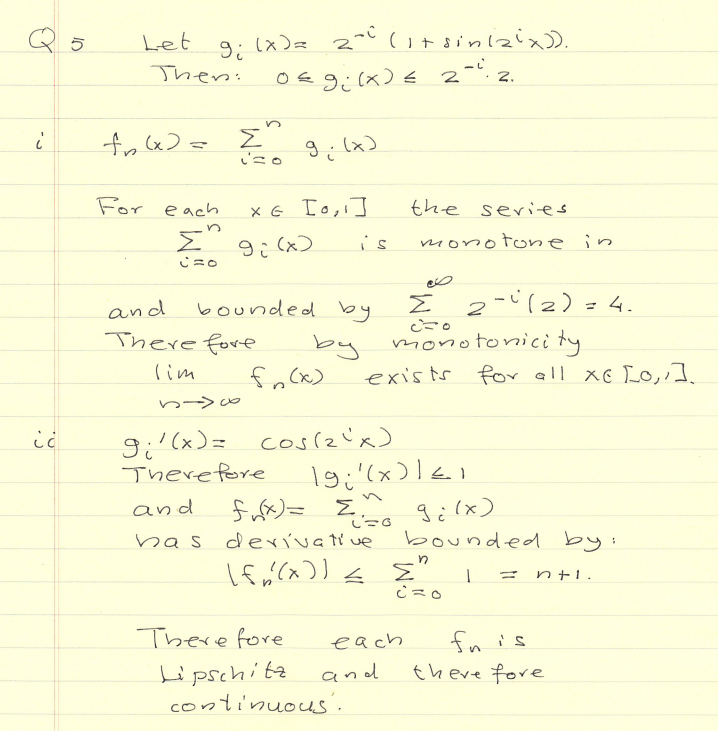 Q 5 Let gᵢ(x) = 2⁻ⁱ (1 + sin(2ⁱx)).
Then: 0 ≤ gᵢ(x) ≤ 2⁻ⁱ. 2.
i fₙ(x) = Σⁿᵢ₌₀ gᵢ(x)
For each x ∈ [0,1] the series
Σⁿᵢ₌₀ gᵢ(x) is monotone in
and bounded by Σ^∞ᵢ₌₀ 2⁻ⁱ(2) = 4.
Therefore by monotonicity
lim n→∞ fₙ(x) exists for all x ∈ [0,1].
ii gᵢ'(x) = cos(2ⁱx)
Therefore |gᵢ'(x)| ≤ 1
and fₙ(x) = Σⁿᵢ₌₀ gᵢ(x)
has derivative bounded by:
|fₙ'(x)| ≤ Σⁿᵢ₌₀ 1 = n+1.
Therefore each fₙ is
Lipschitz and therefore
continuous.